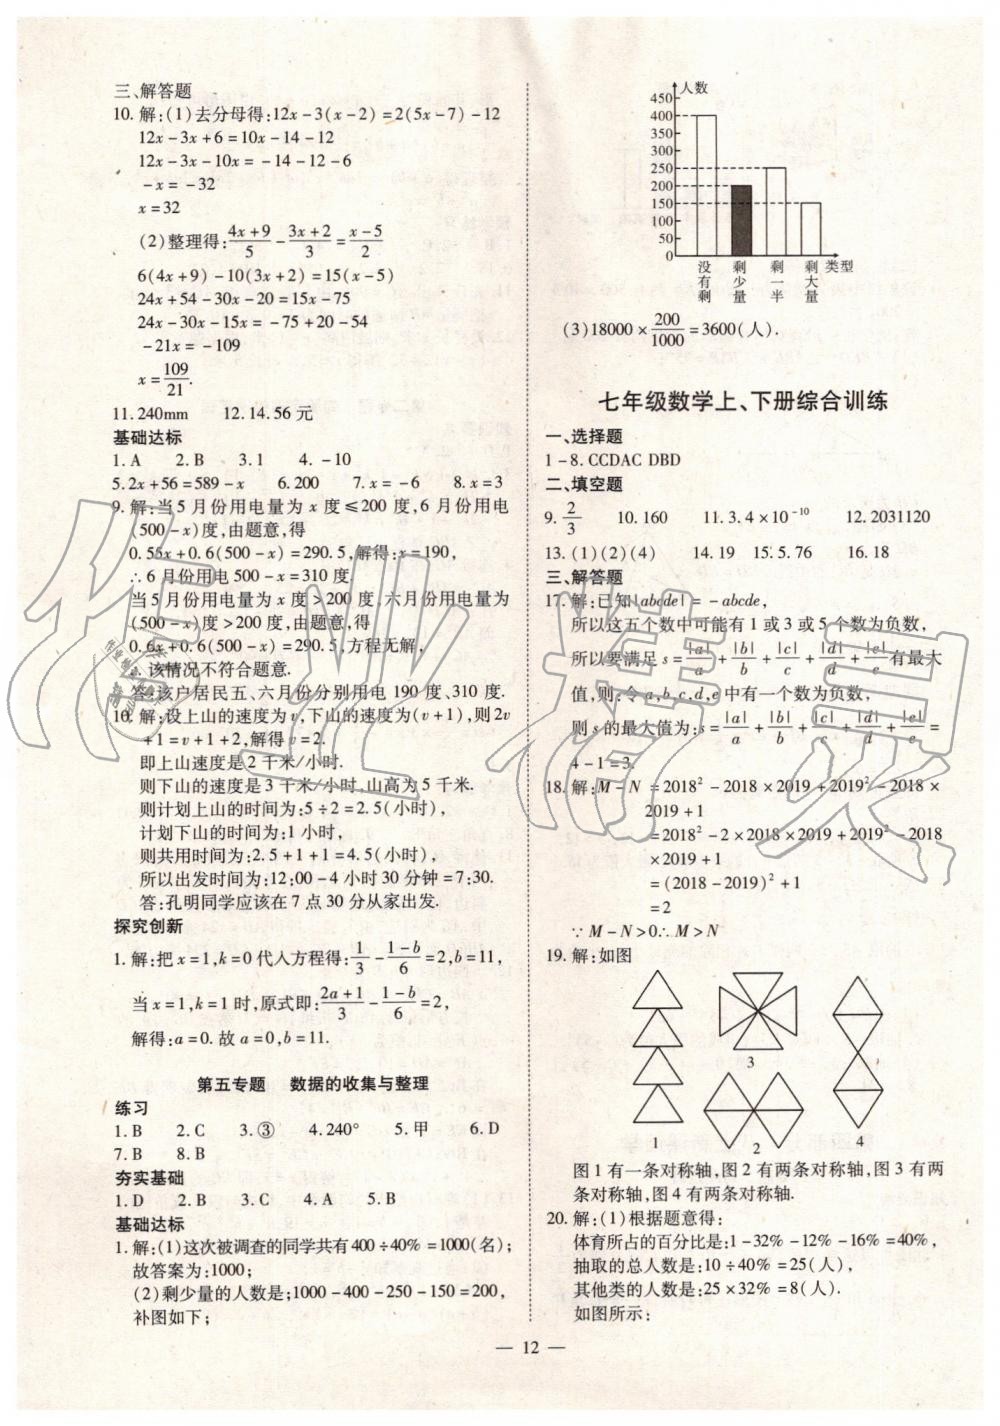 三、解答题
10. 解:(1)去分母得:12x-3(x-2)=2(5x-7)-12
12x-3x+6=10x-14-12
12x-3x-10x=-14-12-6
-x=-32
x=32
(2)整理得:(4x+9)/5-(3x+2)/3=(x-5)/2
6(4x+9)-10(3x+2)=15(x-5)
24x+54-30x-20=15x-75
24x-30x-15x=-75+20-54
-21x=-109
x=109/21.
11. 240mm 12. 14.56 元
基础达标
1. A 2. B 3. 1 4. -10
5. 2x+56=589-x 6. 200 7. x=-6 8. x=3
9. 解:当5月份用电量为x度≤200度,6月份用电
(500-x)度,由题意,得
0.55x+0.6(500-x)=290.5,解得:x=190,
∴6月份用电500-x=310度.
当5月份用电量为x度>200度,六月份用电量为
(500-x)度>200度,由题意,得
0.6x+0.6(500-x)=290.5,方程无解,
∴该情况不符合题意.
答:该户居民五、六月份分别用电190度、310度.
10. 解:设上山的速度为v,下山的速度为(v+1),则2v
+1=v+1+2,解得v=2.
即上山速度是2千米/小时.
则下山的速度是3千米/小时,山高为5千米.
则计划上山的时间为:5÷2=2.5(小时),
计划下山的时间为:1小时,
则共用时间为:2.5+1+1=4.5(小时),
所以出发时间为:12:00-4小时30分钟=7:30.
答:孔明同学应该在7点30分从家出发.
探究创新
1. 解:把x=1,k=0代人方程得:1/3-(1-b)/6=2,b=11,
当x=1,k=1时,原式即:(2a+1)/3-(1-b)/6=2,
解得:a=0. 故a=0,b=11.
第五专题 数据的收集与整理
练习
1. B 2. C 3. ③ 4. 240° 5. 甲 6. D
7. B 8. B
夯实基础
1. D 2. B 3. C 4. A 5. B
基础达标
1. 解:(1)这次被调查的同学共有400÷40%=1000(名);
故答案为:1000;
(2)剩少量的人数是;1000-400-250-150=200,
补图如下;
人数
450
400
350
300
250
200
150
100
50
0
没有剩 剩少量 剩一半 剩大量 类型
(3)18000×200/1000=3600(人).
七年级数学上、下册综合训练
一、选择题
1-8. CCDAC DBD
二、填空题
9. 2/3 10. 160 11. 3.4×10⁻¹⁰ 12. 2031120
13. (1)(2)(4) 14. 19 15. 5.76 16. 18
三、解答题
17. 解:已知|abcde|=-abcde,
所以这五个数中可能有1或3或5个数为负数,
所以要满足s=|a|/a+|b|/b+|c|/c+|d|/d+|e|/e有最大
值,则:令a,b,c,d,e中有一个数为负数,
则s的最大值为:s=|a|/a+|b|/b+|c|/c+|d|/d+|e|/e=
4-1=3.
18. 解:M-N=2018²-2018×2019+2019²-2018×
2019+1
=2018²-2×2018×2019+2019²-2018
×2019+1
=(2018-2019)²+1
=2
∵M-N>0∴M>N
19. 解:如图
1
2
3
4
图1有一条对称轴,图2有两条对称轴,图3有两
条对称轴,图4有两条对称轴.
20. 解:(1)根据题意得:
体育所占的百分比是:1-32%-12%-16%=40%,
抽取的总人数是:10÷40%=25(人),
其他类的人数是:25×32%=8(人).
如图所示:
— 12 —
作业精灵